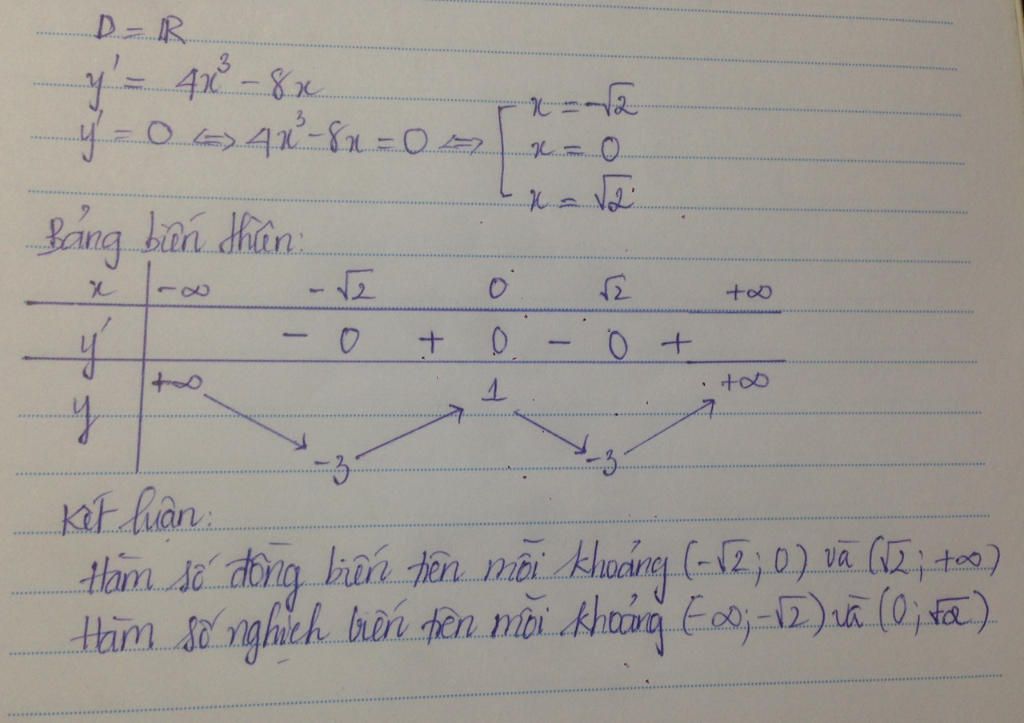 D = ℝ
y' = 4x³ - 8x
y' = 0 ⇔ 4x³ - 8x = 0 ⇔ [ x = -√2
x = 0
x = √2
Bảng biến thiên:
x | -∞ -√2 0 √2 +∞
y' | - 0 + 0 - 0 +
y | +∞ ↘ -3 ↗ 1 ↘ -3 ↗ +∞
Kết luận:
Hàm số đồng biến trên mỗi khoảng (-√2; 0) và (√2; +∞)
Hàm số nghịch biến trên mỗi khoảng (-∞; -√2) và (0; √2)